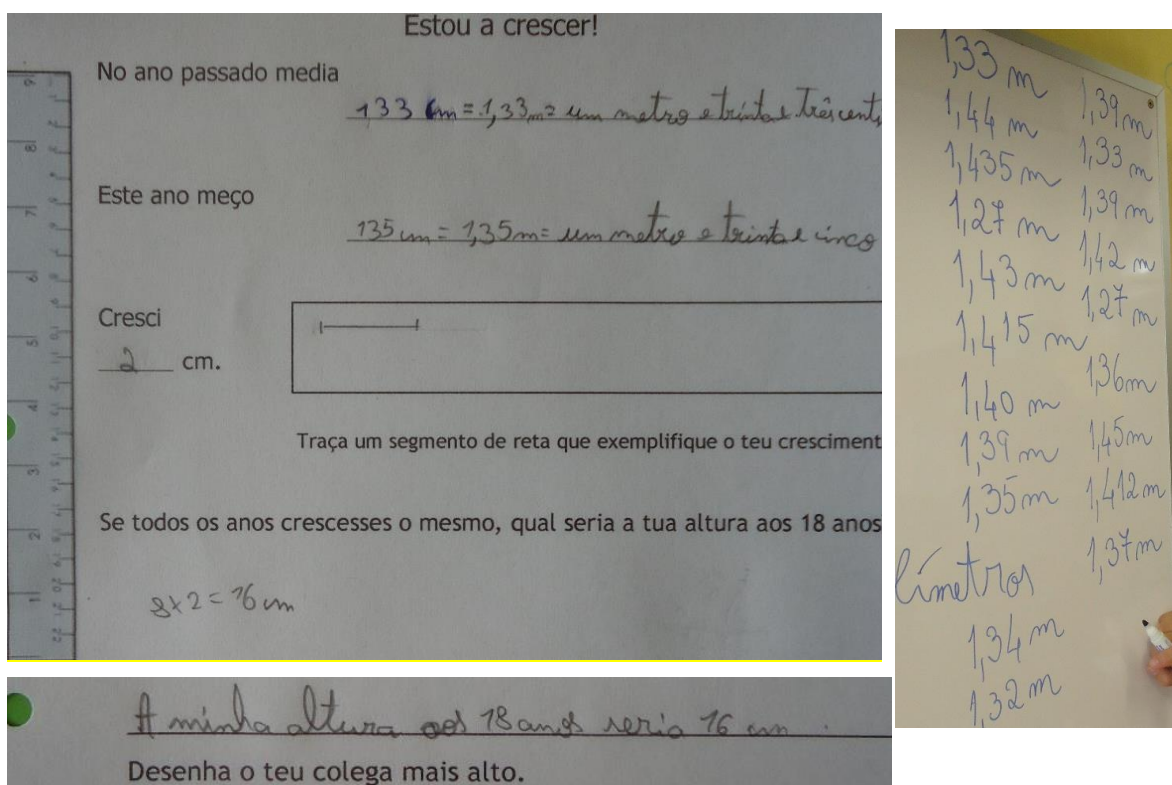 Estou a crescer!
No ano passado media
133 cm = 1,33m = um metro e trinta e três centi
Este ano meço
135 cm = 1,35m = um metro e trinta e cinco
Cresci
2 cm.
Traça um segmento de reta que exemplifique o teu cresciment
Se todos os anos crescesses o mesmo, qual seria a tua altura aos 18 anos
8x2=16 cm
A minha altura aos 18 anos seria 16 cm.
Desenha o teu colega mais alto.
1,33 m
1,44 m
1,435 m
1,27 m
1,43 m
1,415 m
1,40 m
1,39 m
1,35 m
límetros
1,34 m
1,32 m
1,39 m
1,33 m
1,39 m
1,42 m
1,27 m
1,36 m
1,45 m
1,412 m
1,37 m